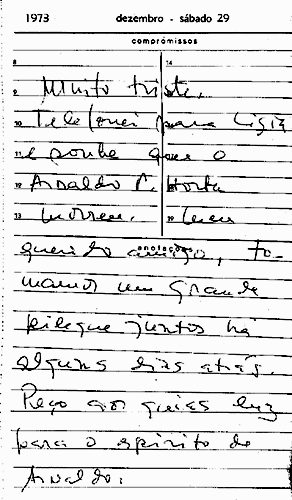 1973 dezembro - sábado 29
compromissos
8 14
9 Muito triste.
10 Telefonei para Ligia
11 e soube que o
12 Arnaldo P. Horta
13 morreu. 19 Meu
anotações
querido amigo, to-
mamos um grande
pileque juntos há
alguns dias atrás.
Peço aos guias luz
para o espírito de
Arnaldo.